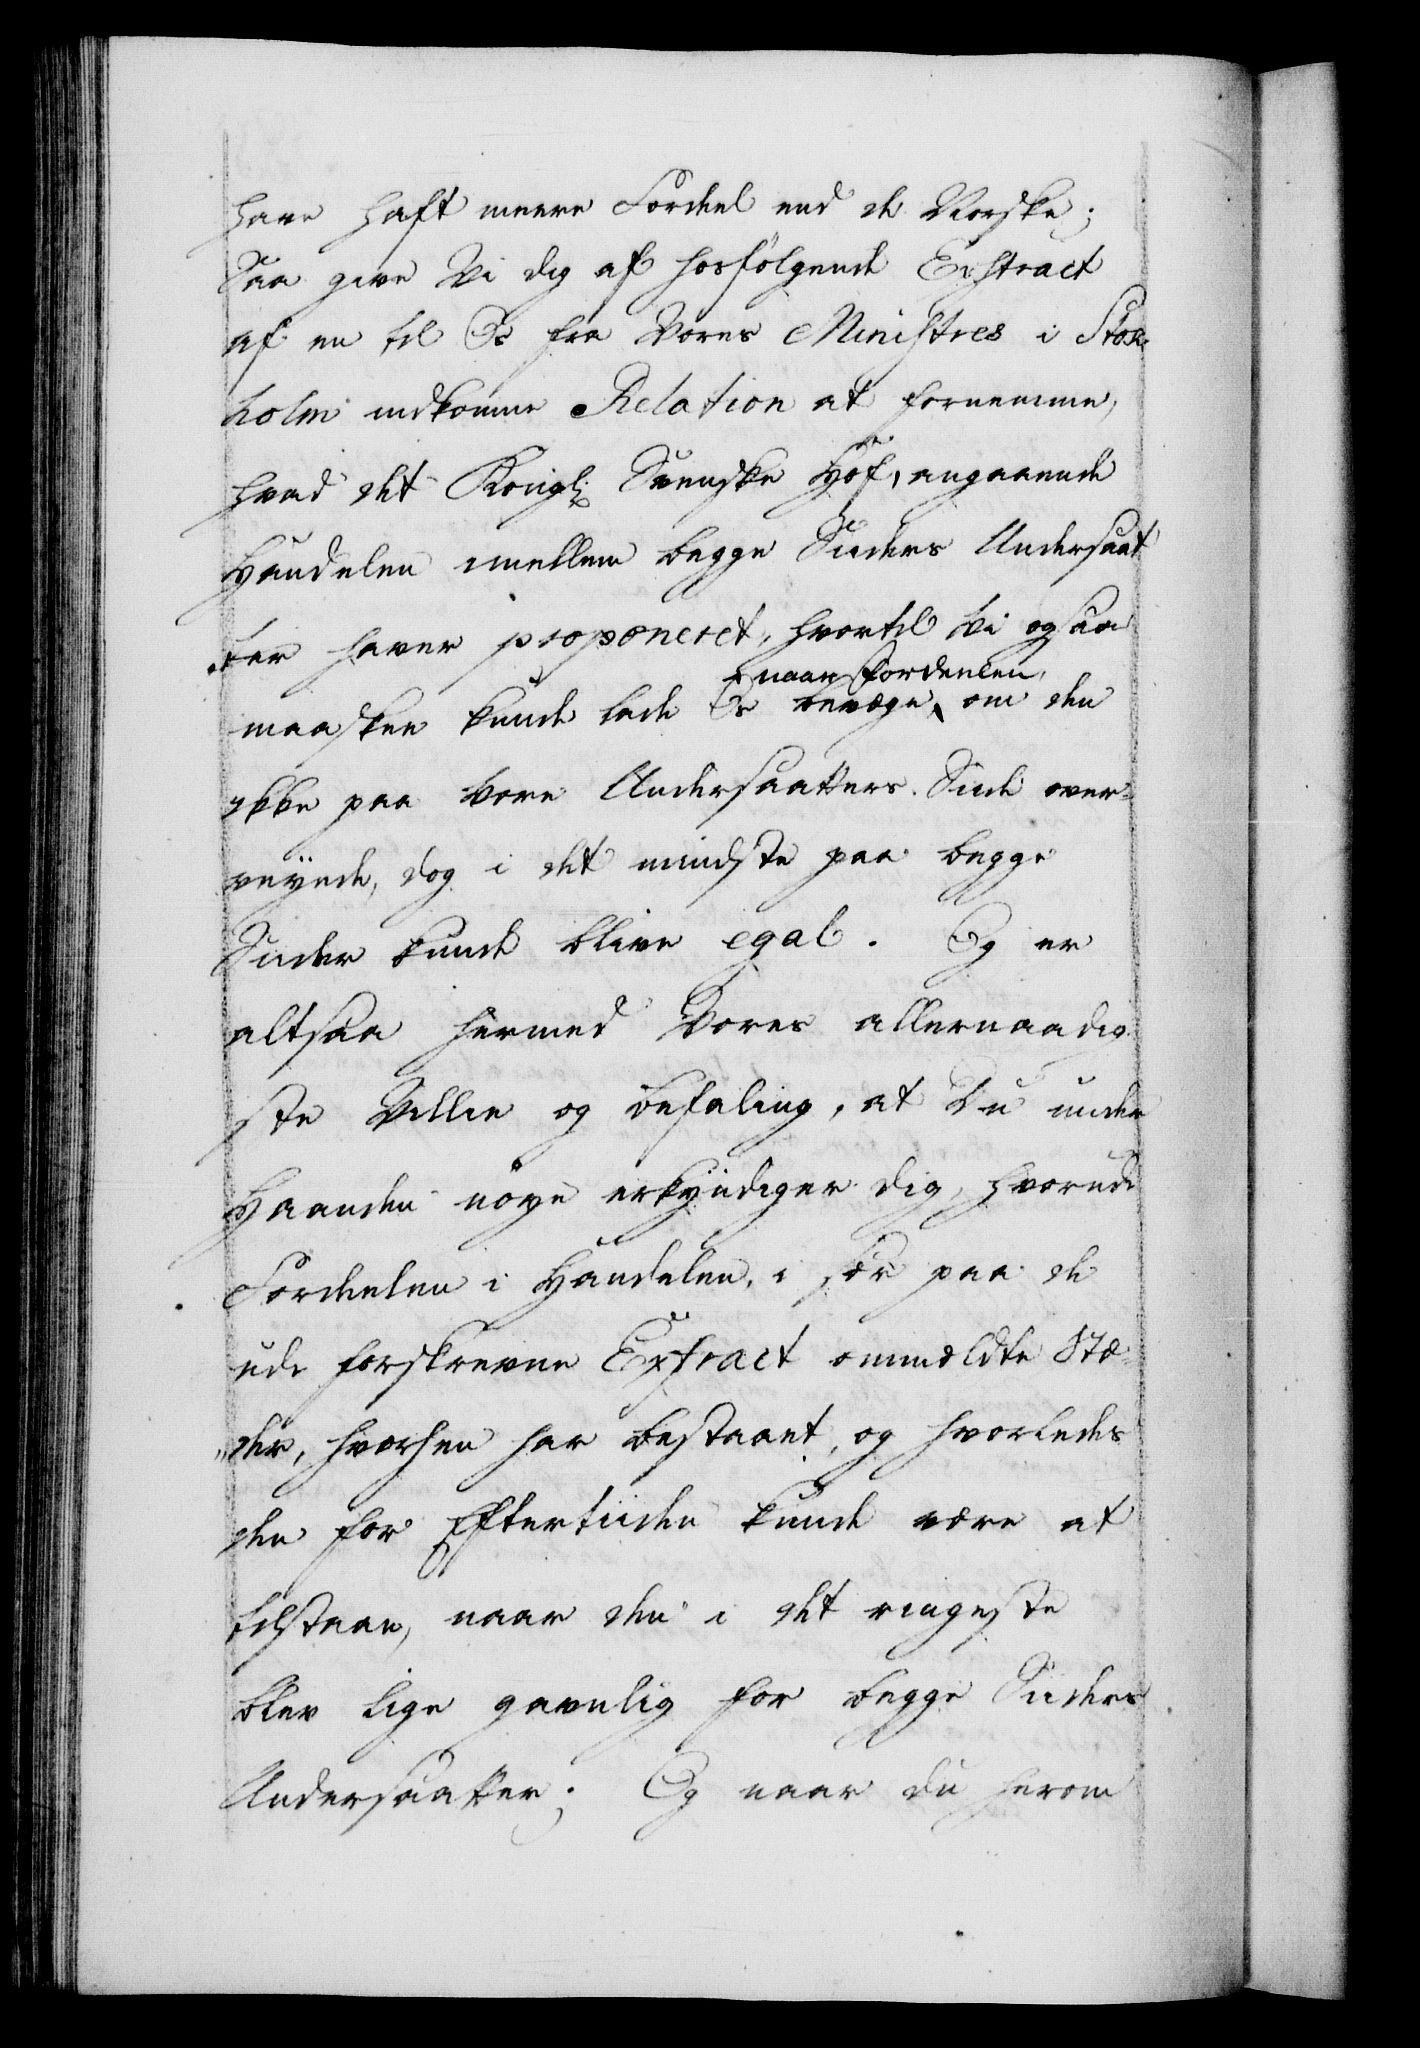 have haft meere Fordeel end de Norske;
Saa give Vi dig af hosfölgende Extract
af en til Os fra Vores Ministres i Stok-
holm indkomne Relation at fornemme,
hvad det Kongl: Svenske Hof, angaaende
Handelen imellem begge Siiders Undersaat-
ter haver proponeret, hvortil Vi ogsaa
naar Fordeelen,
maaskee kunde lade Os bevæge, om den
ikke paa Vore Undersaatters Siide over-
veyede, dog i det mindste paa begge
Siider kunde blive egal. Og er
altsaa hermed Vores allernaadig-
ste Villie og Befaling, at Du under
Haanden nöye erkyndiger dig, hvorudi
Fordeelen i Handelen, i sær paa de
udi forskrevne Extract ommældte Stæ-
der, hvorhen har bestaaet, og hvorledes
den for Eftertiiden kunde være at
tilstaae, naar den i det ringeste
blev lige gavnlig for begge Siiders
Undersaatter; Og naar du herom